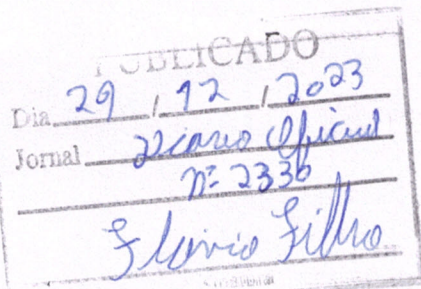 PUBLICADO
Dia 29 / 12 / 2023
Jornal Diário Oficial
nº 2336
Flavio Filho